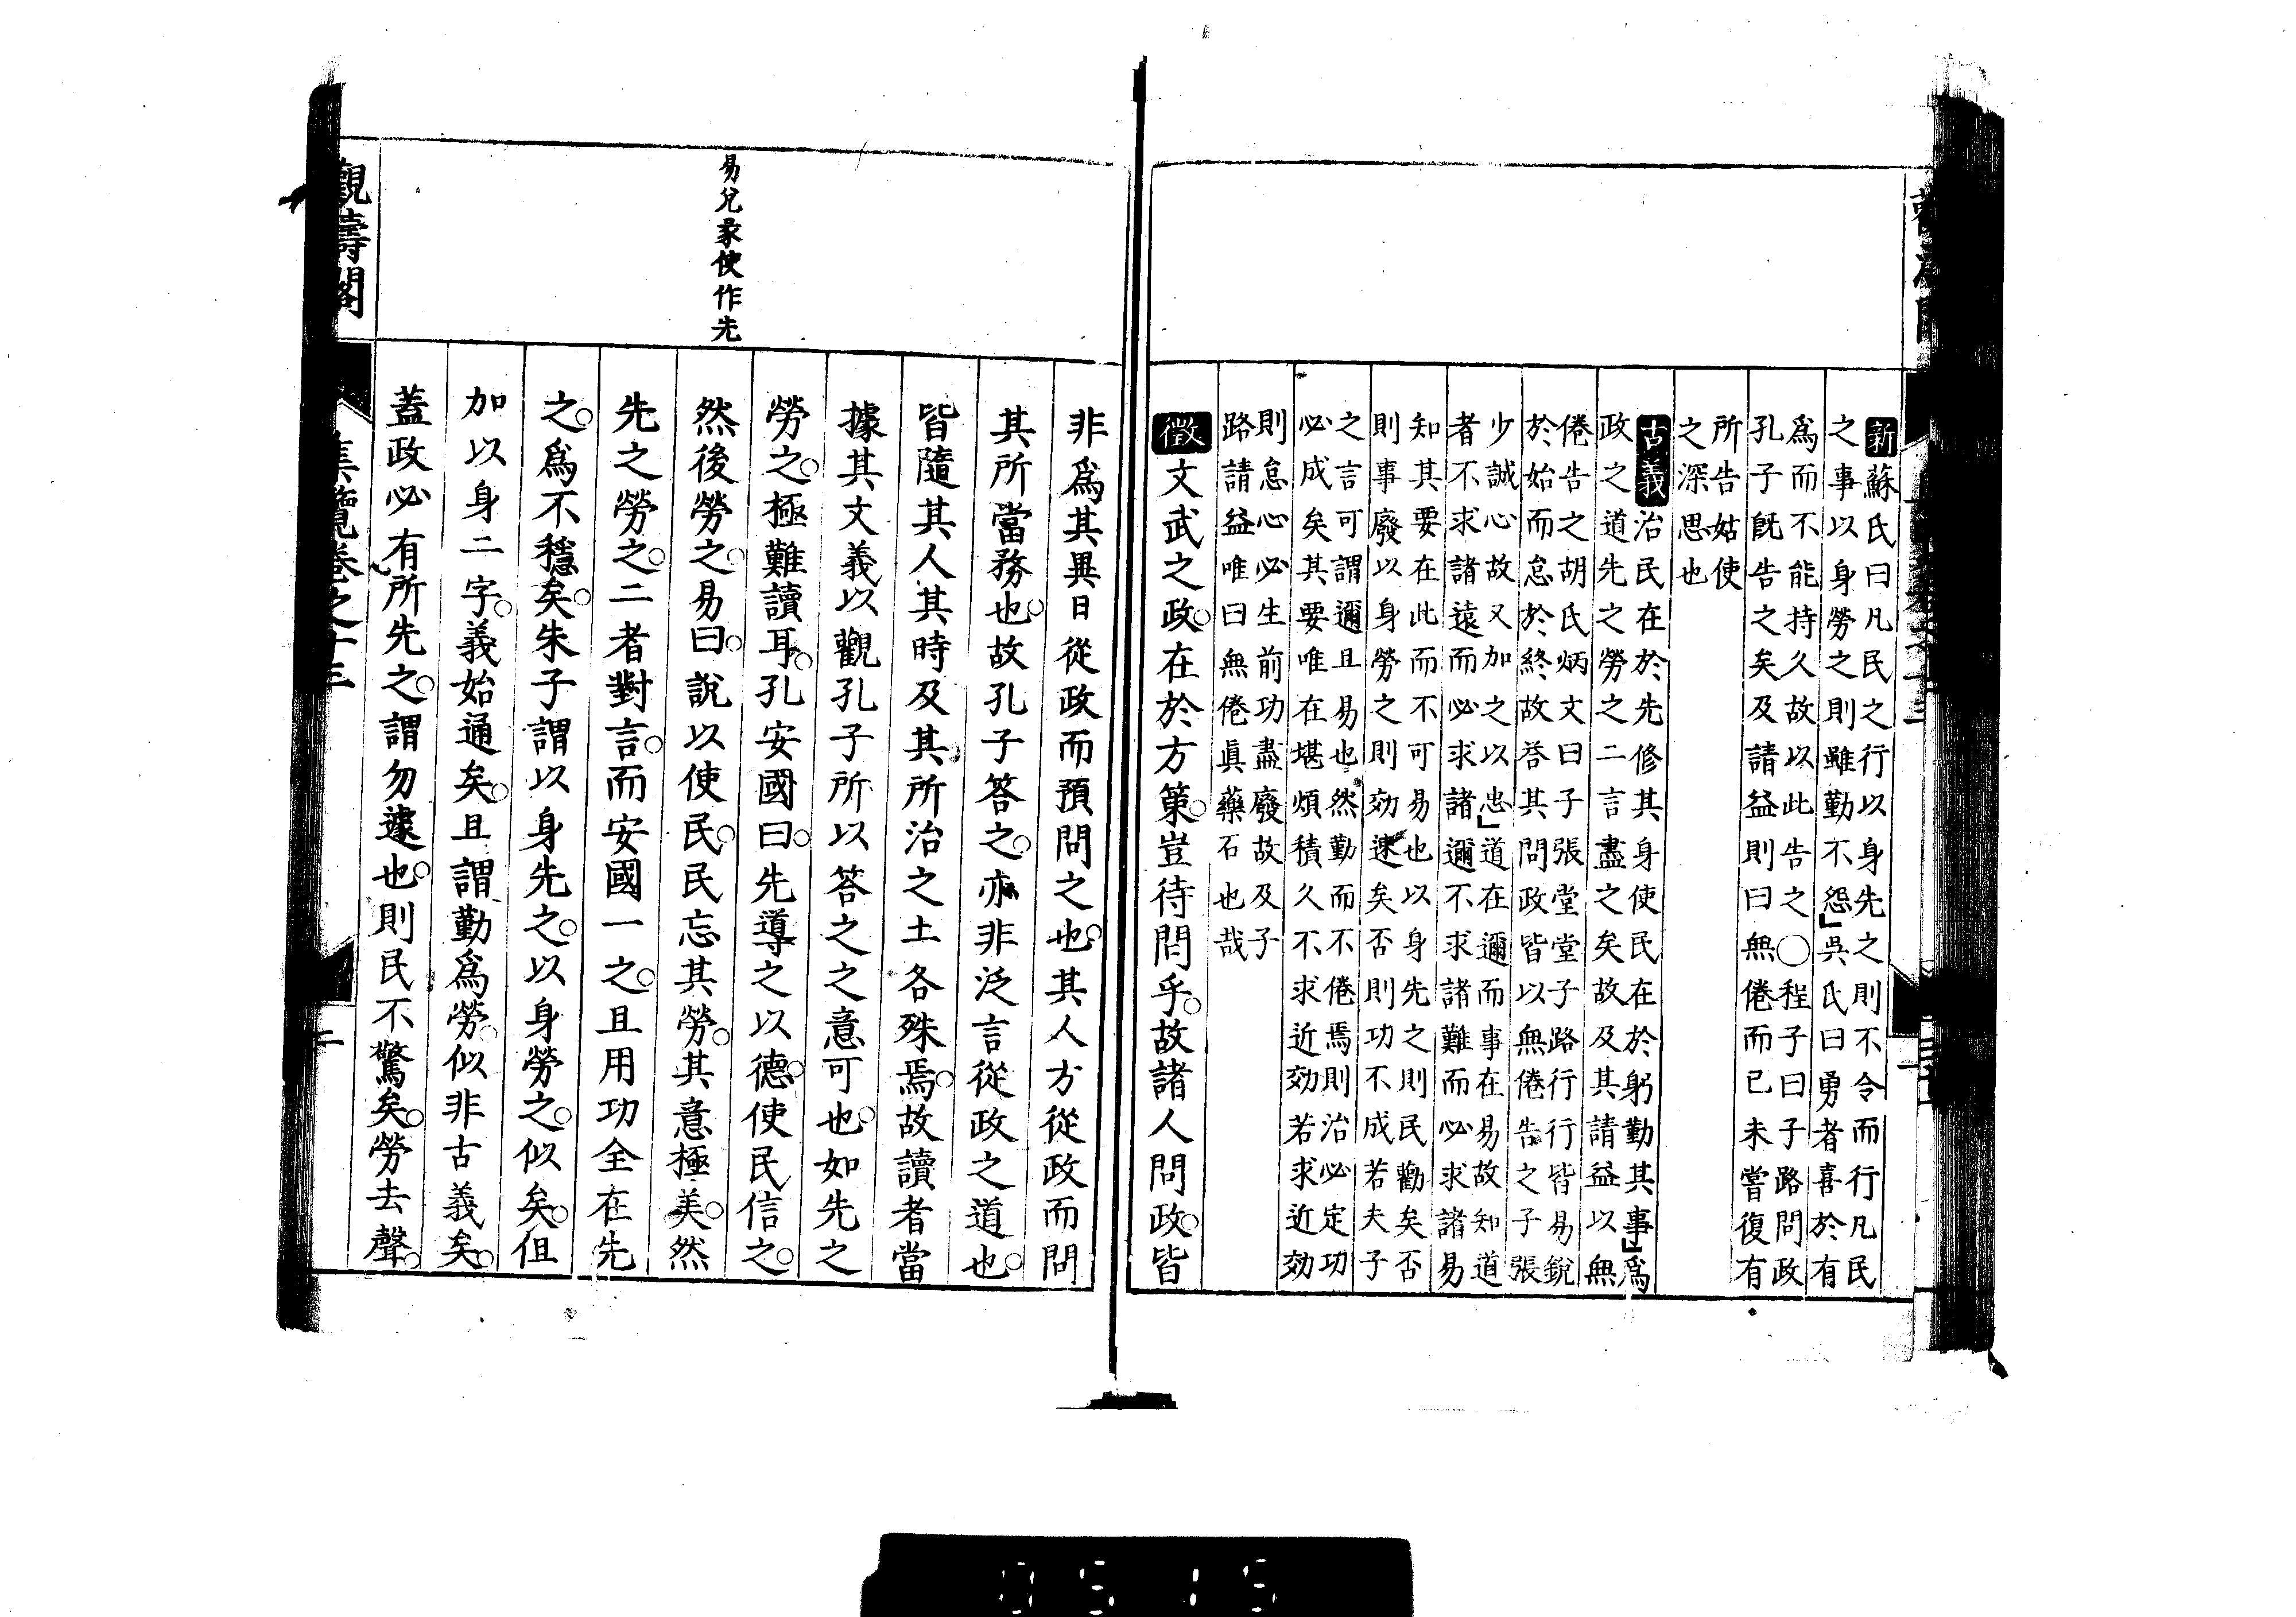 新 蘇氏曰凡民之行以身先之則不令而行凡民
之事以身勞之則雖勤不怨」吳氏曰勇者喜於有
爲而不能持久故以此告之○程子曰子路問政
孔子旣告之矣及請益則曰無倦而已未嘗復有
所告姑使
之深思也
古義 治民在於先修其身使民在於躬勤其事」爲
政之道先之勞之二言盡之矣故及其請益以無
倦告之胡氏炳文曰子張堂堂子路行行皆易銳
於始而怠於終故答其問政皆以無倦告之子張
少誠心故又加之以忠」道在邇而事在易故知道
者不求諸遠而必求諸邇不求諸難而必求諸易
知其要在此而不可易也以身先之則民勸矣否
則事廢以身勞之則効速矣否則功不成若夫子
之言可謂邇且易也然勤而不倦焉則治必定功
必成矣其要唯在堪煩積久不求近効若求近効
則怠心必生前功盡廢故及子
路請益唯曰無倦眞藥石也哉
徵 文武之政。在於方策。豈待問乎。故諸人問政。皆
非爲其異日從政而預問之也。其人方從政而問
其所當務也。故孔子答之。亦非泛言從政之道也。
皆隨其人其時及其所治之土各殊焉。故讀者當
據其文義以觀孔子所以答之之意可也。如先之
勞之。極難讀耳。孔安國曰。先導之以德。使民信之。
易兌彖使作先
然後勞之。易曰。說以使民。民忘其勞。其意極美。然
先之勞之。二者對言。而安國一之。且用功全在先
之。爲不穩矣。朱子謂以身先之。以身勞之。似矣。但
加以身二字。義始通矣。且謂勤爲勞。似非古義矣。
蓋政必有所先之。謂勿遽也。則民不驚矣。勞去聲。
觀濤閣
集覽卷之十三
二
0515